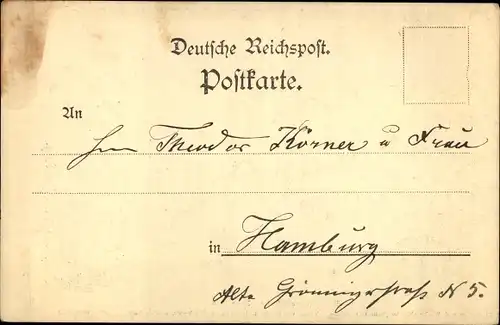 Deutsche Reichspost.
Postkarte.
An
Herrn Theodor Körner u Frau
in Hamburg
Alte Gröningerstraße N 5.